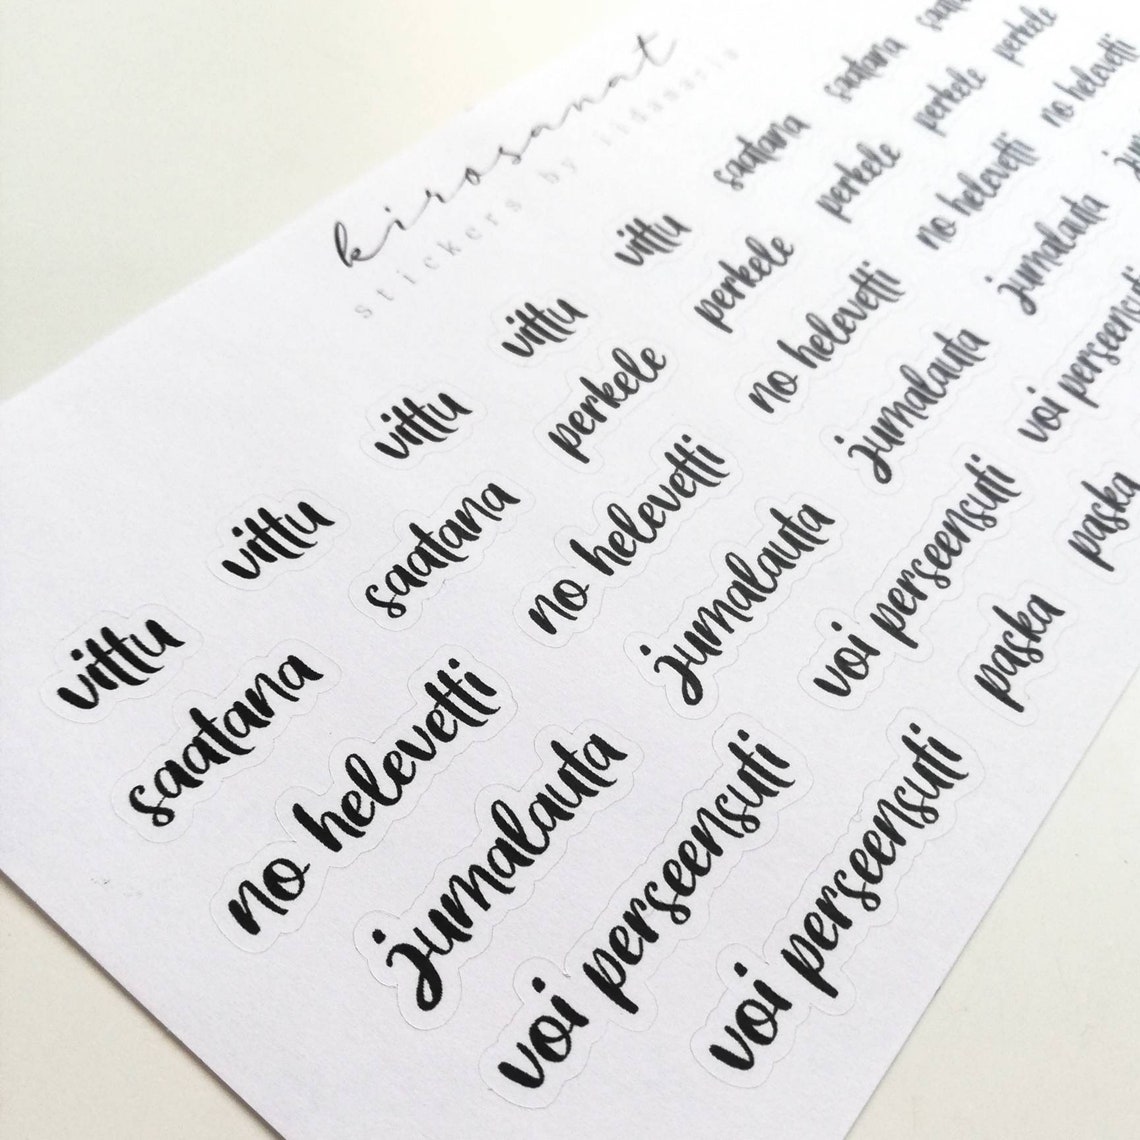 kirosanat
stickers by
vittu vittu vittu vittu vittu saatana saatana
saatana saatana perkele perkele perkele perkele perkele
no helevetti no helevetti no helevetti no helevetti no helevetti
jumalauta jumalauta jumalauta jumalauta
voi perseensuti voi perseensuti voi perseensuti
voi perseensuti paska paska